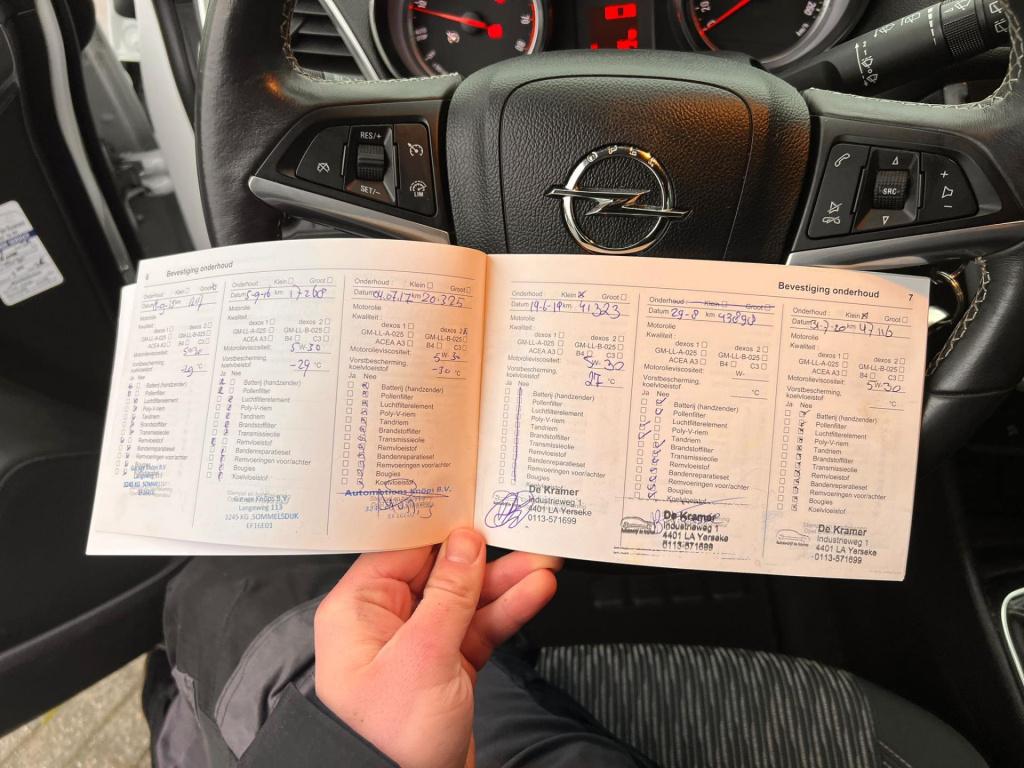 RES/+
SET/-
LIM
OPEL
SRC
+
-
6 Bevestiging onderhoud
Onderhoud Klein Groot
Datum km
Motorolie
Kwaliteit:
dexos 1 dexos 2
GM-LL-A-025 GM-LL-B-025
ACEA A3 B4 C3
Motorolieviscositeit:
5W30
Vorstbescherming,
koelvloeistof -29 °C
Ja Nee
Batterij (handzender)
Pollenfilter
Luchtfilterelement
Poly-V-riem
Tandriem
Brandstoffilter
Transmissieolie
Remvloeistof
Bandenreparatieset
Remvoeringen voor/achter
Bougies
Koelvloeistof
Langeweg 113
Onderhoud Klein Groot
Datum 5-9-16 km 17268
Motorolie
Kwaliteit:
dexos 1 dexos 2
GM-LL-A-025 GM-LL-B-025
ACEA A3 B4 C3
Motorolieviscositeit:
5W-30
Vorstbescherming,
koelvloeistof -29 °C
Ja Nee
Batterij (handzender)
Pollenfilter
Luchtfilterelement
Poly-V-riem
Tandriem
Brandstoffilter
Transmissieolie
Remvloeistof
Bandenreparatieset
Remvoeringen voor/achter
Bougies
Koelvloeistof
Garage Knöps B.V.
Langeweg 113
3245 KG SOMMELSDIJK
Onderhoud Klein Groot
Datum 04.07.17 km 20.325
Motorolie
Kwaliteit:
dexos 1 dexos 2
GM-LL-A-025 GM-LL-B-025
ACEA A3 B4 C3
Motorolieviscositeit:
5W-30
Vorstbescherming,
koelvloeistof -30 °C
Ja Nee
Batterij (handzender)
Pollenfilter
Luchtfilterelement
Poly-V-riem
Tandriem
Brandstoffilter
Transmissieolie
Remvloeistof
Bandenreparatieset
Remvoeringen voor/achter
Bougies
Koelvloeistof
Bevestiging onderhoud 7
Onderhoud Klein Groot
Datum 19-6-19 km 41323
Motorolie
Kwaliteit:
dexos 1 dexos 2
GM-LL-A-025 GM-LL-B-025
ACEA A3 B4 C3
Motorolieviscositeit:
5W-30
Vorstbescherming,
koelvloeistof 27 °C
Ja Nee
Batterij (handzender)
Pollenfilter
Luchtfilterelement
Poly-V-riem
Tandriem
Brandstoffilter
Transmissieolie
Remvloeistof
Bandenreparatieset
Remvoeringen voor/achter
Bougies
Koelvloeistof
De Kramer
Industrieweg 1
4401 LA Yerseke
0113-571699
Onderhoud Klein Groot
Datum 29-8 km 43898
Motorolie
Kwaliteit:
dexos 1 dexos 2
GM-LL-A-025 GM-LL-B-025
ACEA A3 B4 C3
Motorolieviscositeit:
W-
Vorstbescherming,
koelvloeistof °C
Ja Nee
Batterij (handzender)
Pollenfilter
Luchtfilterelement
Poly-V-riem
Tandriem
Brandstoffilter
Transmissieolie
Remvloeistof
Bandenreparatieset
Remvoeringen voor/achter
Bougies
Koelvloeistof
De Kramer
Industrieweg 1
4401 LA Yerseke
0113-571699
Onderhoud Klein Groot
Datum km 47116
Motorolie
Kwaliteit:
dexos 1 dexos 2
GM-LL-A-025 GM-LL-B-025
ACEA A3 B4 C3
Motorolieviscositeit:
5W-30
Vorstbescherming,
koelvloeistof °C
Ja Nee
Batterij (handzender)
Pollenfilter
Luchtfilterelement
Poly-V-riem
Tandriem
Brandstoffilter
Transmissieolie
Remvloeistof
Bandenreparatieset
Remvoeringen voor/achter
Bougies
Koelvloeistof
De Kramer
Industrieweg 1
4401 LA Yerseke
0113-571699